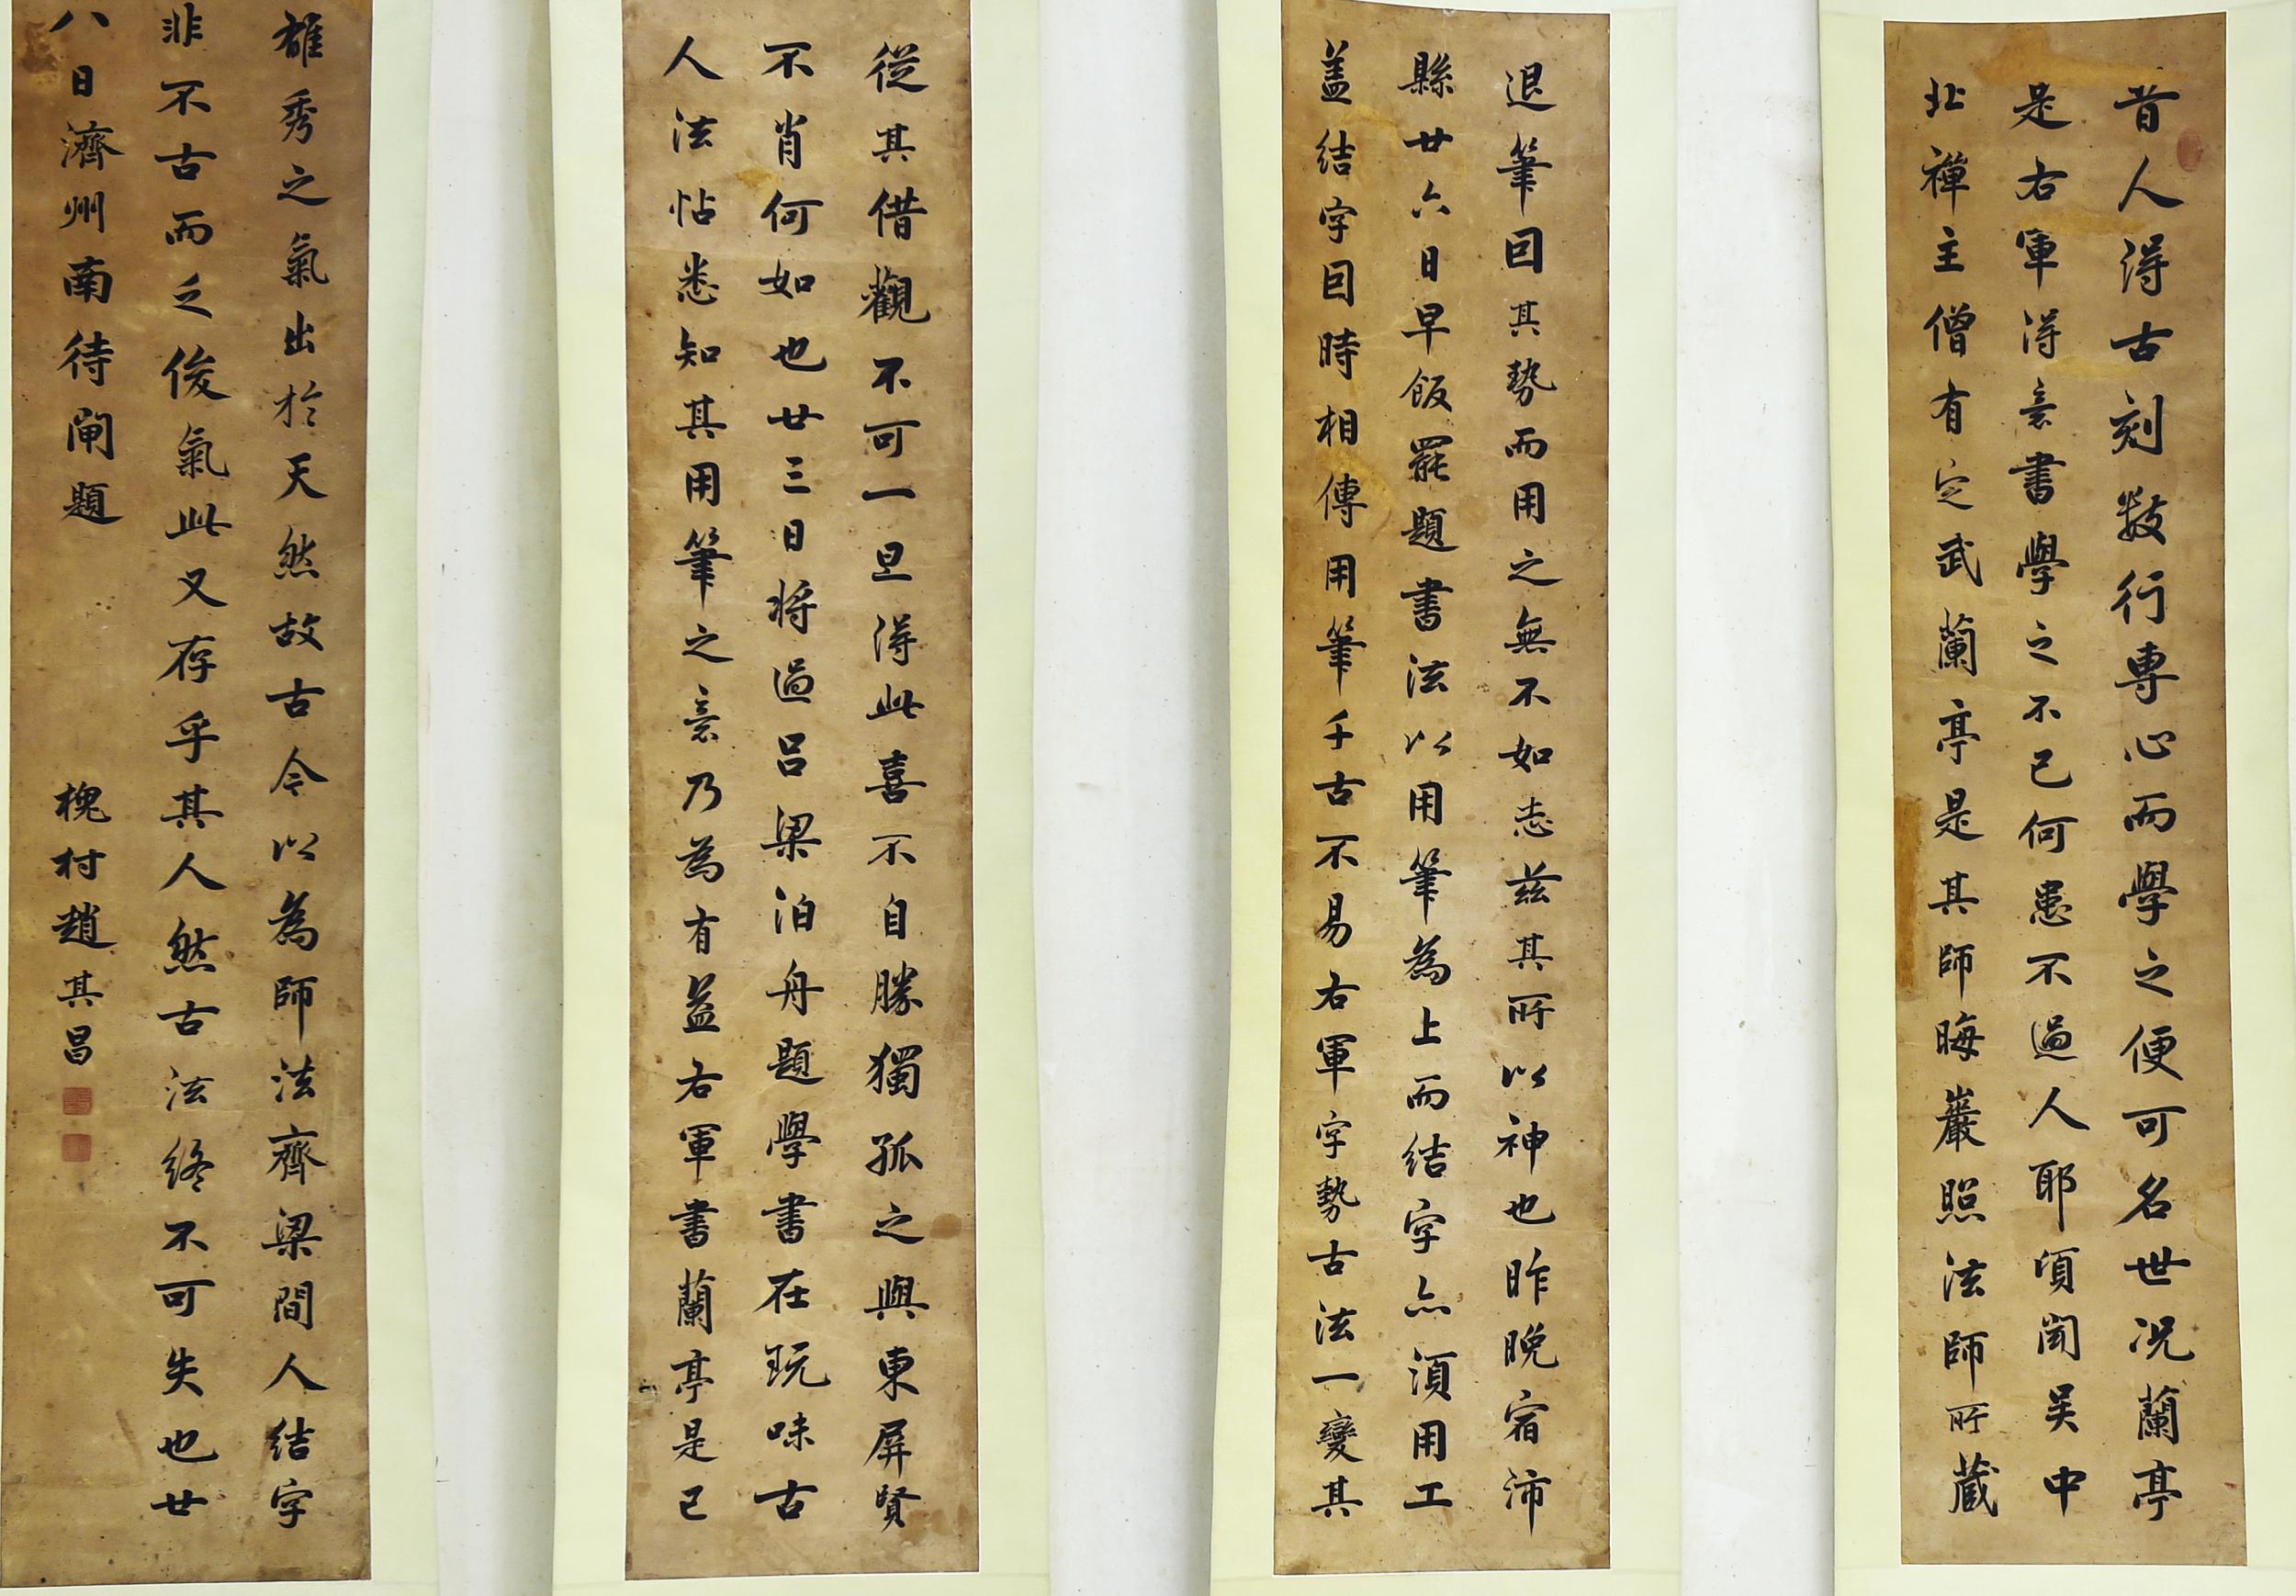 昔人得古刻數行專心而學之便可名世況蘭亭
是右軍得意書學之不已何患不過人耶頃聞吳中
北禪主僧有定武蘭亭是其師晦巖照法師所藏
退筆因其勢而用之無不如志茲其所以神也昨晚宿沛
縣廿六日早飯罷題書法以用筆為上而結字亦須用工
蓋結字因時相傳用筆千古不易右軍字勢古法一變其
從其借觀不可一旦得此喜不自勝獨孤之與東屏賢
不肖何如也廿三日將過呂梁泊舟題學書在玩味古
人法帖悉知其用筆之意乃為有益右軍書蘭亭是已
雄秀之氣出於天然故古今以為師法齊梁間人結字
非不古而乏俊氣此又存乎其人然古法終不可失也廿
八日濟州南待閘題
槐村趙其昌